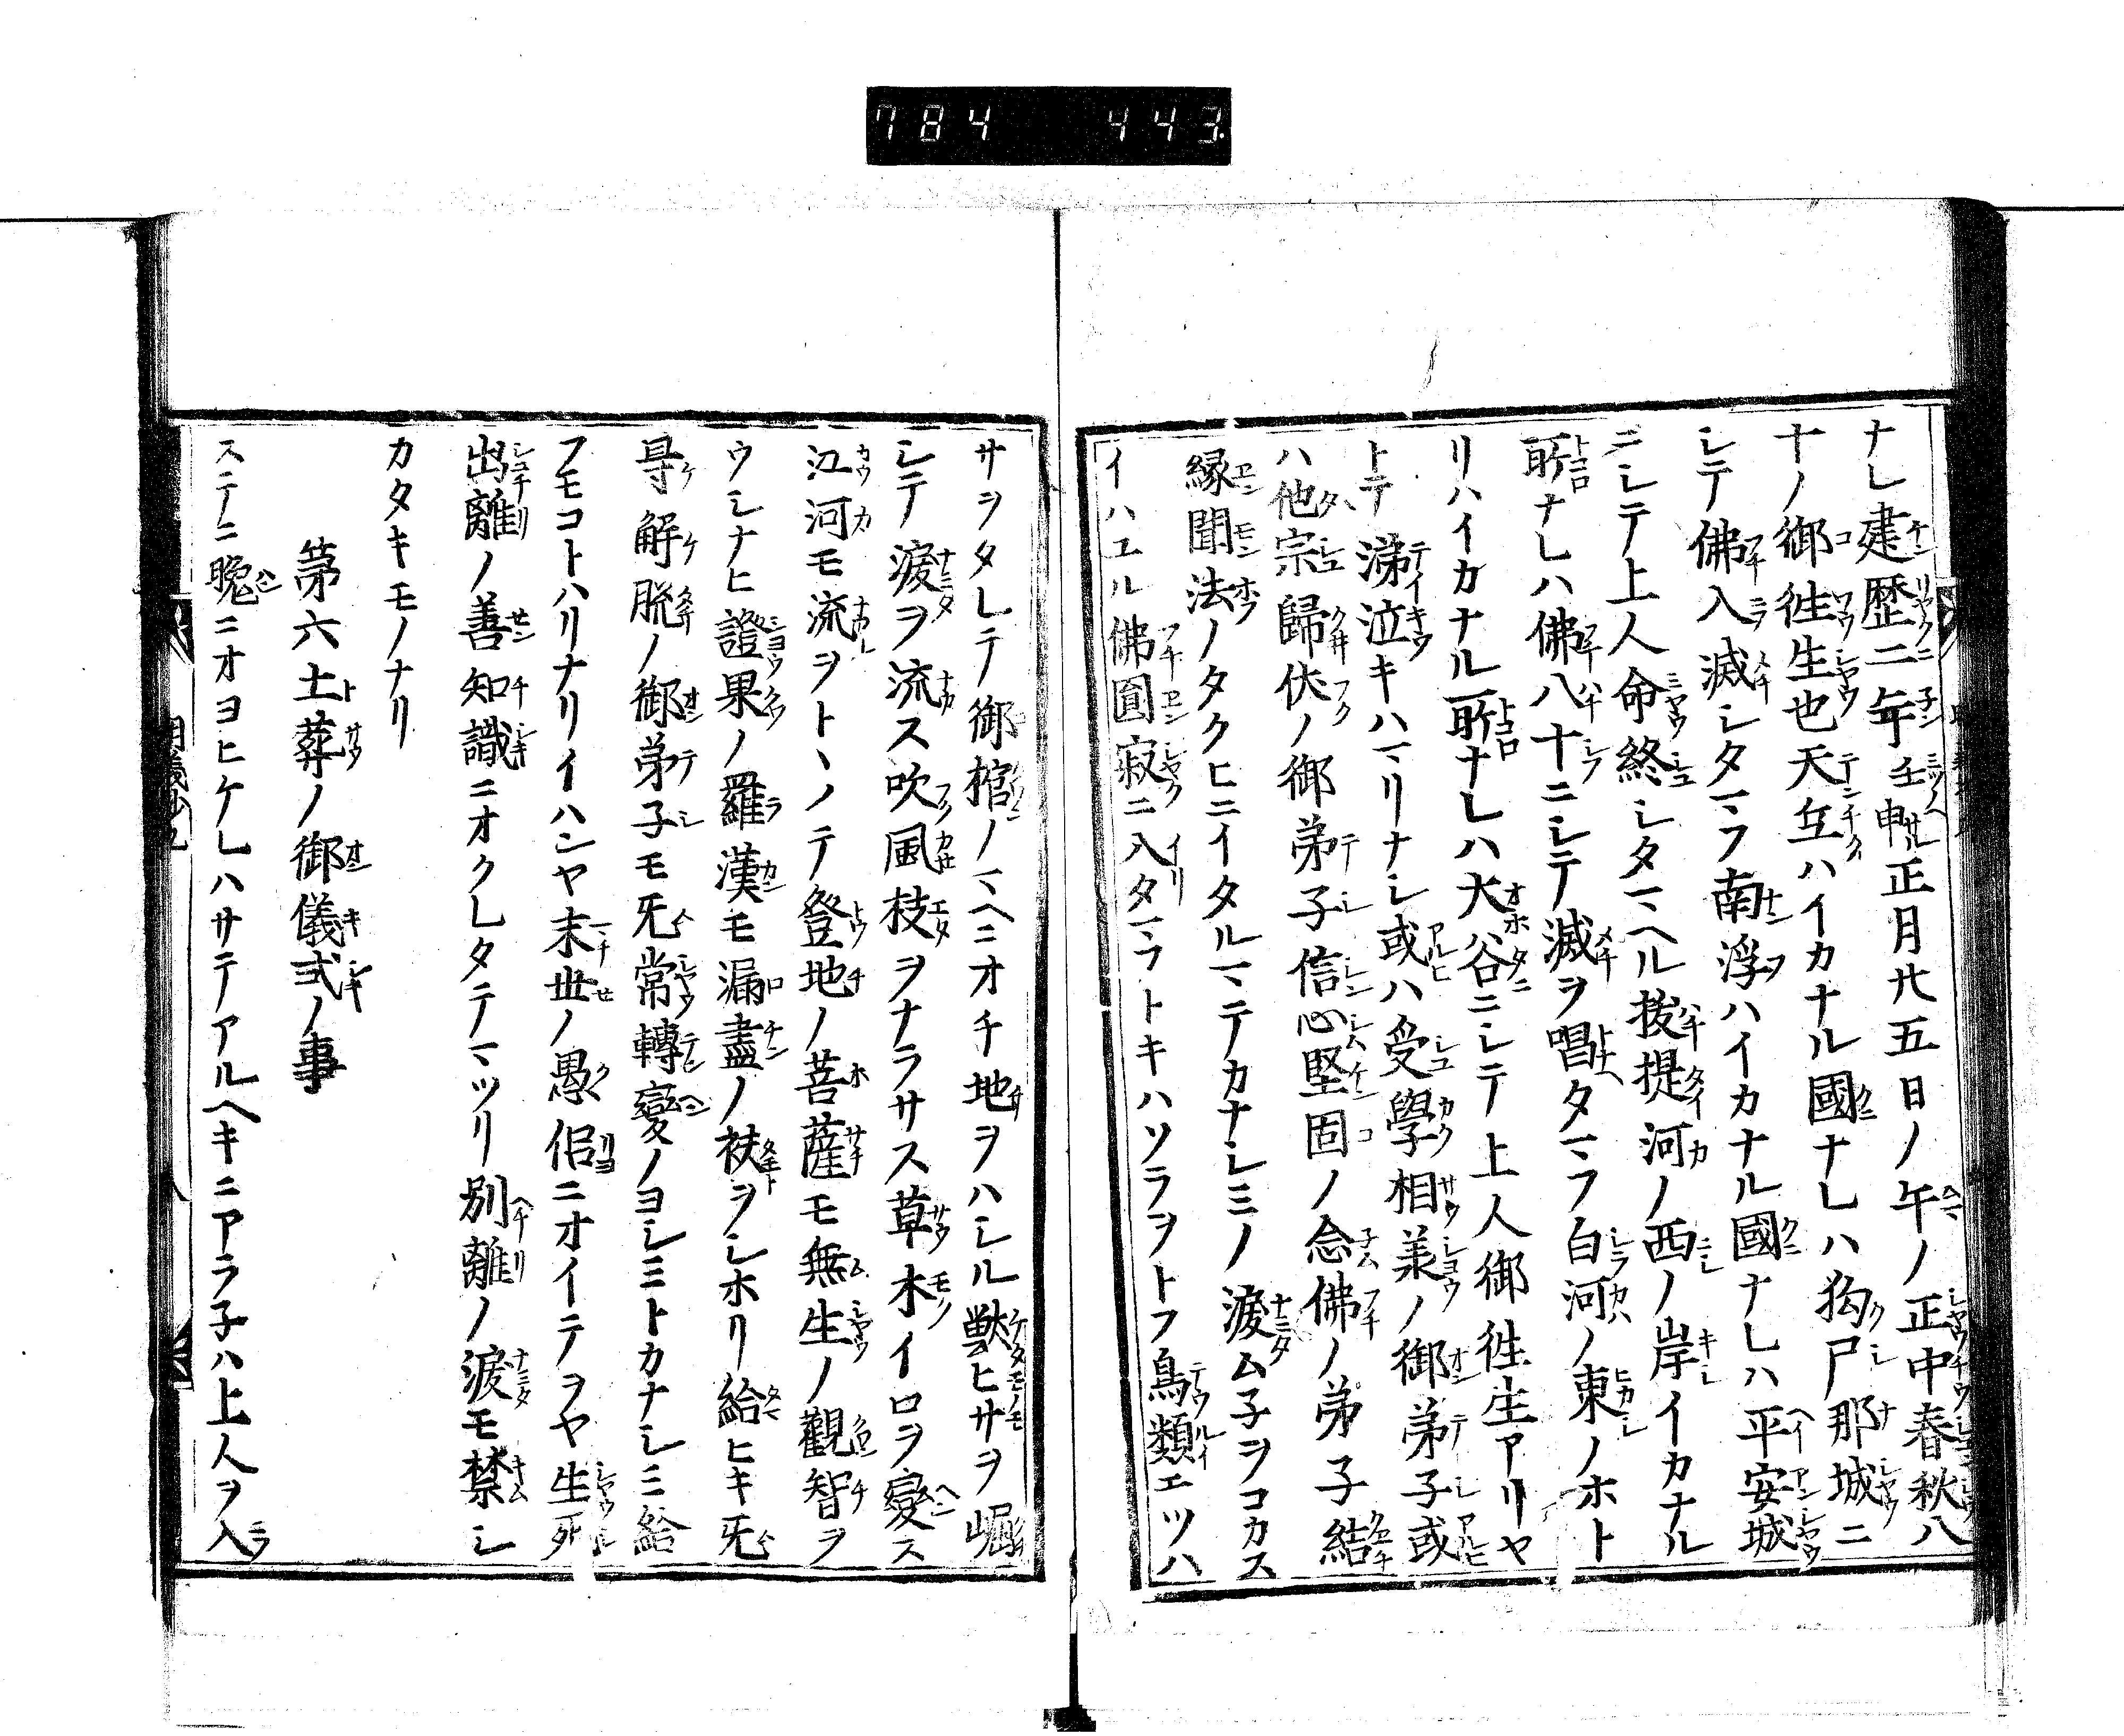 784 443
ナシ建歴二年壬申正月廿五日ノ午ノ正中春秋八
十ノ御徃生也天竺ハイカナル國ナレハ狗尸那城ニ
シテ佛入滅シタマフ南浮ハイカナル國ナレハ平安城
ニシテ上人命終シタマヘル拔提河ノ西ノ岸イカナル
所ナレハ佛八十ニシテ滅ヲ唱タマフ白河ノ東ノホト
リハイカナル所ナレハ大谷ニシテ上人御徃生アリヤ
トテ涕泣キハマリナシ或ハ受學相羕ノ御弟子或
ハ他宗歸伏ノ御弟子信心堅固ノ念佛ノ弟子結
縁聞法ノタクヒニイタルマテカナシミノ淚ム子ヲコカス
イハユル佛圓寂ニ入タマフトキハソラヲトフ鳥類エツハ
サヲタレテ御棺ノマヘニオチ地ヲハシル獣ヒサヲ崛
シテ淚ヲ流ス吹風枝ヲナラサス草木イロヲ變ス
江河モ流ヲトヽノテ登地ノ菩薩モ無生ノ觀智ヲ
ウシナヒ證果ノ羅漢モ漏盡ノ袂ヲシホリ給ヒキ旡
㝵解脱ノ御弟子モ旡常轉變ノヨシミトカナシミ給
フモコトハリナリイハンヤ末世ノ愚侶ニオイテヲヤ生死
出離ノ善知識ニオクレタテマツリ別離ノ淚モ禁シ
カタキモノナリ
第六土葬ノ御儀式ノ事
ステニ晩ニオヨヒケレハサテアルヘキニアラ子ハ上人ヲ入